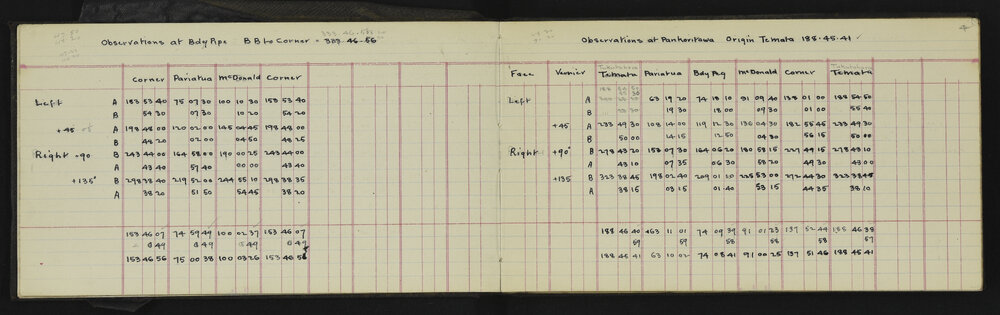 Observations at Bdy Ppe B B Lo Corner = 333.46.56
Corner Pariatua McDonald Corner
Left A 153 53 40 75 07 30 100 10 30 153 53 40
B 54 30 07 30 10 20 54 20
+45 A 198 48 00 120 02 00 145 04 45 198 48 00
B 48 20 02 00 04 50 48 25
Right +90 B 243 44 00 164 58 00 190 00 25 243 44 00
A 43 40 57 40 00 00 43 40
+135° B 298 38 40 219 52 00 244 55 10 298 38 35
A 38 20 51 50 54 45 38 20
153 46 07 74 59 49 100 02 37 153 46 07
0 49 0 49 0 49 0 49
153 46 56 75 00 38 100 03 26 153 46 56
Observations at Pankoritawa Origin Temata 188.45.41
Face Vernier Temata Pariatua Bdy Peg McDonald Corner Temata
Left A 63 19 20 74 18 10 91 09 40 138 01 00 188 54 50
B 19 30 18 00 09 30 01 00 55 40
+45° A 233 49 30 108 14 00 119 12 30 136 04 30 182 55 45 233 49 30
B 50 00 14 15 12 50 04 30 56 15 50 00
Right +90° B 278 43 20 153 07 30 164 06 20 180 58 15 227 49 15 278 43 10
A 43 10 07 35 06 30 58 20 49 30 43 00
+135 B 323 38 45 198 02 40 209 01 10 225 53 00 272 44 30 323 38 45
A 38 15 03 15 01 40 53 15 44 35 38 10
188 46 40 63 11 01 74 09 39 91 01 23 137 52 44 188 46 38
59 59 58 58 58 57
188 45 41 63 10 02 74 08 41 91 00 25 137 51 46 188 45 41